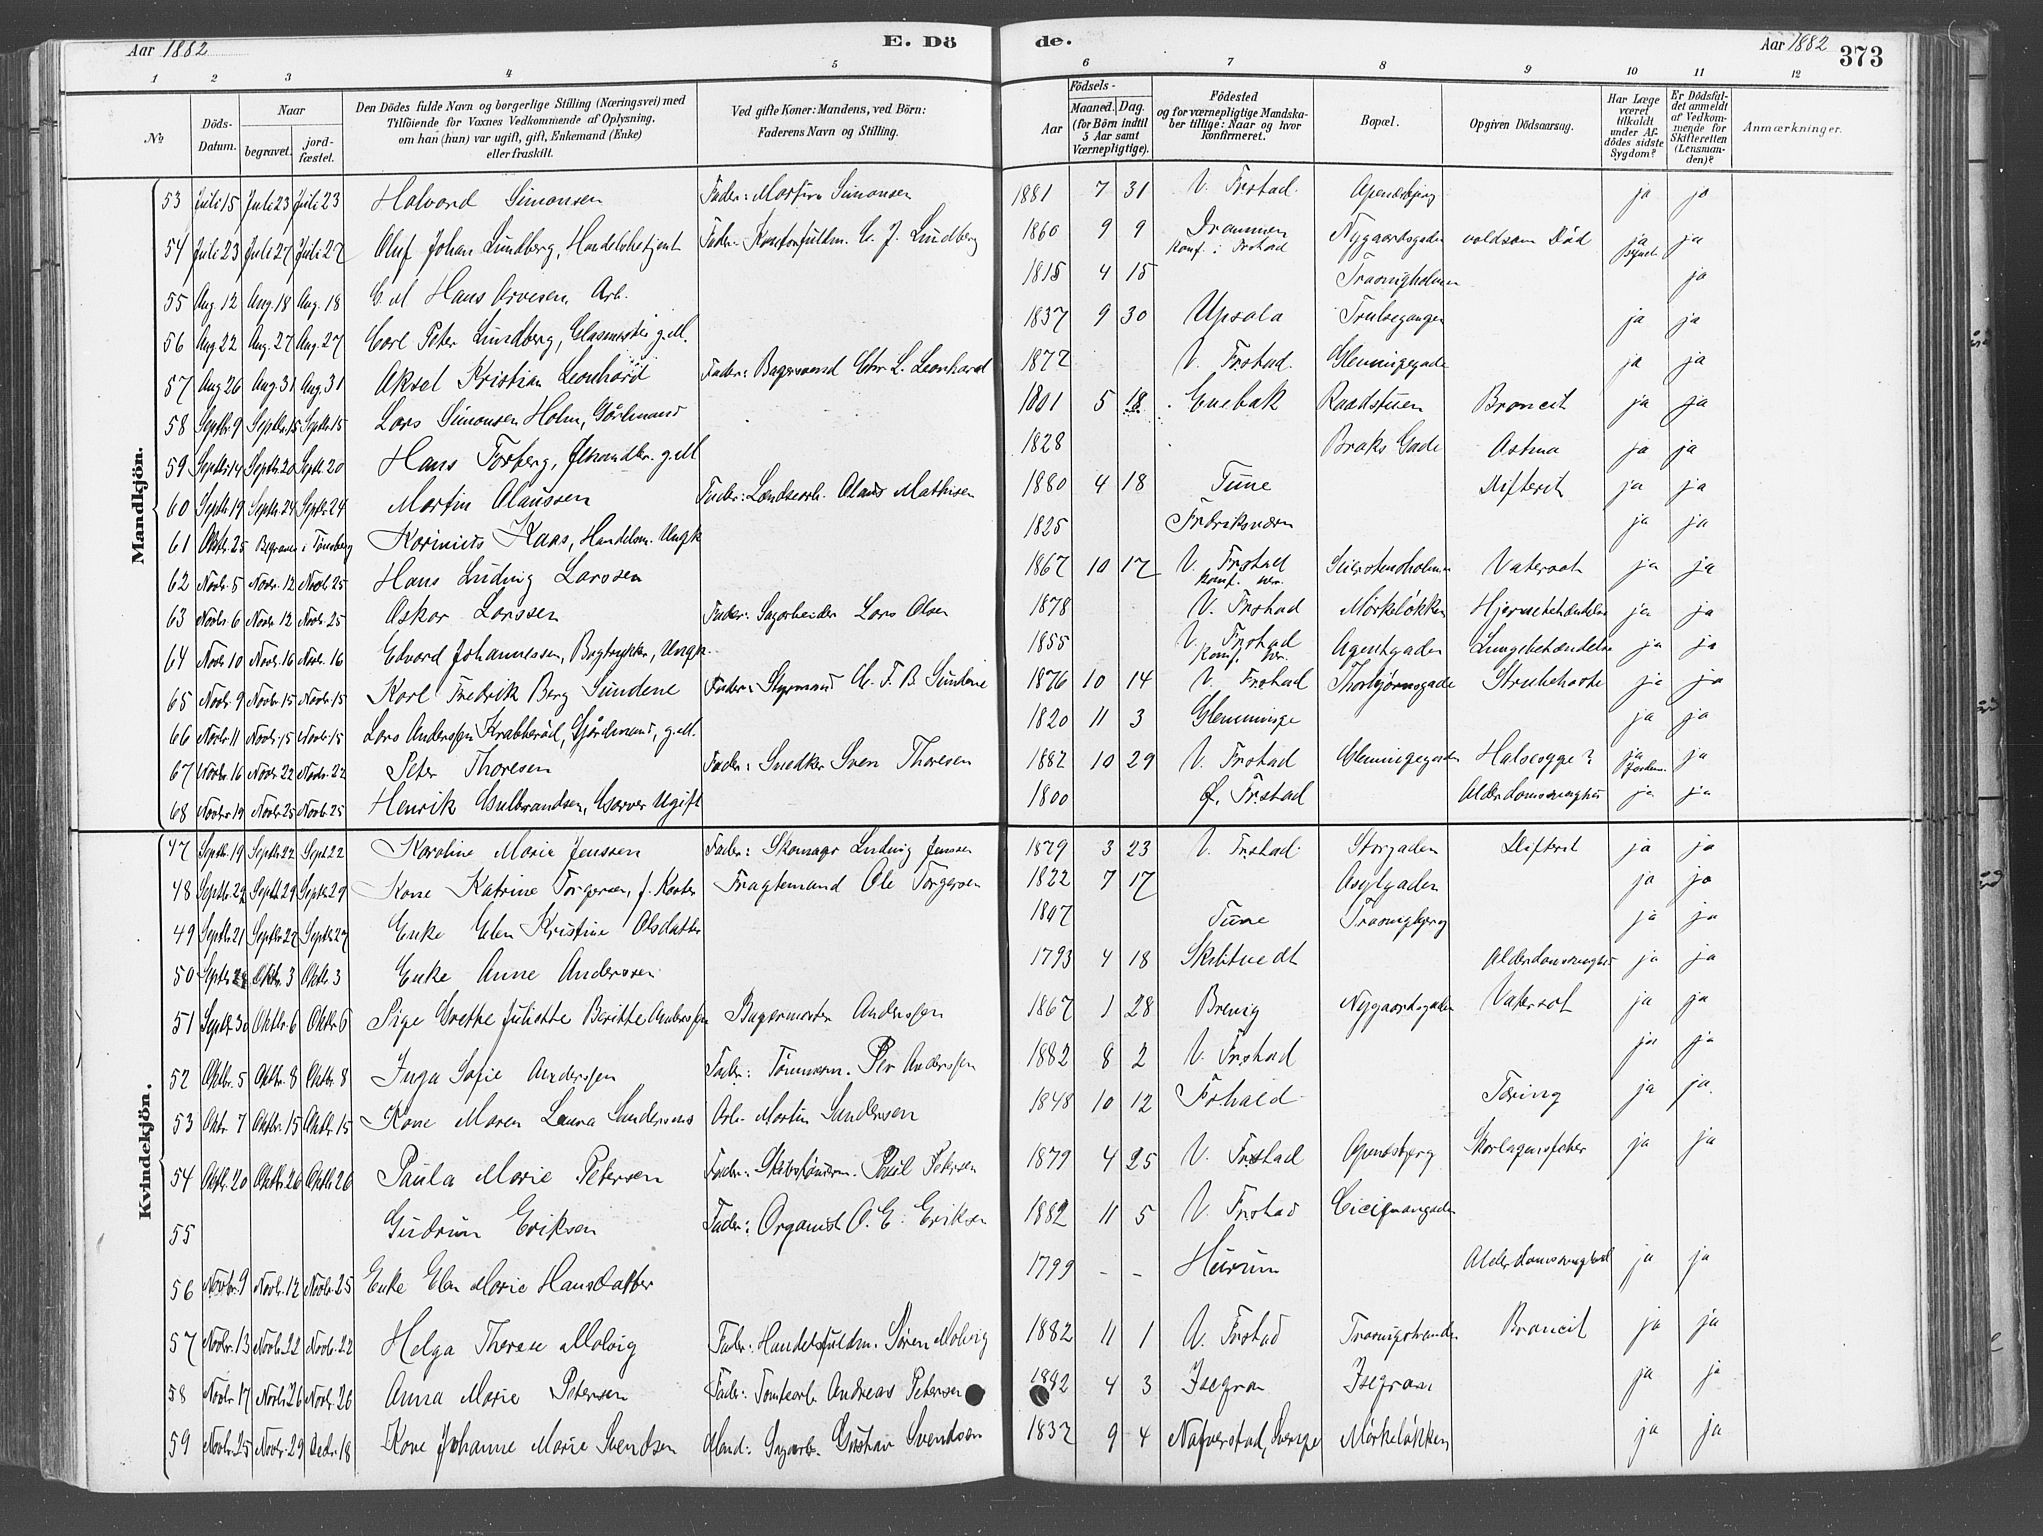 Aar 1882 E. Dö de. Aar 1882 373
1 2 3 4 5 6 7 8 9 10 11 12
No Döds-Datum. Naar begravet. jordfæstet. Den Dödes fulde Navn og borgerlige Stilling (Næringsvei) med Tilföiende for Voxnes Vedkommende af Oplysning, om han (hun) var ugift, gift, Enkemand (Enke) eller fraskilt. Ved gifte Koner: Mandens, ved Börn: Faderens Navn og Stilling. Födsels- Aar Maaned. Dag. (for Börn indtil 5 Aar samt Værnepligtige). Födested og for værnepligtige Mandskaber tillige: Naar og hvor konfirmeret. Bopæl. Opgiven Dödsaarsag. Har Læge været tilkaldt under Afdödes sidste Sygdom? Er Dödsfaldet anmeldt af Vedkommende for Skifteretten (Lensmanden)? Anmærkninger.
Mandkjön.
53 Juli 15 Juli 23 Juli 23 Halvard Simonsen Fader: Martin Simonsen 1881 7 31 V. Frstad. Apenæsbjerg ja ja
54 Juli 23 Juli 27 Juli 27 Oluf Johan Lundberg, Handelsbetjent Fader: Kontorfuldm. C. J. Lundberg 1860 9 9 Drammen Konf. i Frstad Nygaardsgaden voldsom Död ja ja
55 Aug 12 Aug. 18 Aug. 18 E.M. Hans Arvesen, Arb. 1815 4 15 Trosvigholmen ja
56 Aug 22 Aug. 27 Aug. 27 Carl Peter Lundberg, Glasmester g.M. 1837 9 30 Upsala Trulsegangen ja ja
57 Aug 26 Aug. 31 Aug 31 Aksel Kristian Leonhard Fader: Bagersvend Chr L. Leonhard 1872 V. Frstad. Glemmigegade ja ja
58 Septbr. 9 Septbr. 15 Septbr. 15 Lars Simonsen Holm, Gårdmand 1801 5 18 Enebak Raadstuen Broncit ja ja
59 Septbr 14 Septbr 20 Septb. 20 Hans Torberg, g.M 1828 Braks Gade Astma ja ja
60 Septbr. 19 Septbr. 24 Septbr. 24 Martin Olaussen Fader: Landsarb. Olaus Mathisen 1880 4 18 Tune Difterit ja ja
61 Oktbr. 25 Begraves i Tønsberg Karinius Kaas, Handelsm. Ungk 1825 Fredriksværn ja ja
62 Novbr. 5 Novbr. 12 Novbr 25 Hans Ludvig Larssen 1867 10 17 V. Frstad Konf. her. Vatersot ja ja
63 Novbr. 6 Novbr. 12 Novbr. 25 Oskar Larssen Fader: Sagarbeider Lars Olsen 1878 V. Frstad Mørkeløkken Hjernebetændelse ja ja
64 Novbr 10 Novbr. 16 Novbr. 16 Edvard Johannessen, Bogtrykker, Ungk. 1855 V. Frstad Konf. her. Agentgaden Lungebetændelse ja ja
65 Novbr. 9 Novbr. 15 Novbr. 15 Karl Fredrik Berg Sundene Fader: Styrmand C. F. B Sundene 1876 10 14 V. Frstad Thorbjørnsgade Strubehoste ja ja
66 Novbr. 11 Novbr. 15 Novbr. 15 Lars Anderssen Krabberød, Gårdmand, g.M. 1820 11 3 Glemminge ja ja
67 Novbr. 16 Novbr 22 Novbr. 22 Peter Thoresen Fader: Snedker Sven Thoresen 1882 10 29 V. Frstad Glemmigegaden Halssyge? ja ja
68 Novbr. 19 Novbr. 25 Novbr. 25 Henrik Gulbrandsen, Garver Ugift 1800 Ø. Frstad Alderdomssvaghed ja ja
Kvindekjön.
47 Septbr. 19 Septbr 22 Sept 22 Karoline Marie Jenssen Fader: Skomagr Ludvig Jenssen 1879 3 23 V. Frstad. Storgaden Difterit ja ja
48 Septbr. 22 Septbr. 29 Septbr. 29 Kone Katrine Torgersen, f. Fragtemand Ole Torgersen 1822 7 17 Asylgaden ja ja
49 Septbr. 21 Septbr. 27 Septbr 27 Enke Elen Kristine Olsdatter 1807 Tune Trosvigbjerg ja ja
50 Septbr. Oktbr. 3 Oktbr. 3 Enke Anne Anderssen 1793 4 18 Skibtvedt Alderdomssvaghed ja ja
51 Septbr. 30 Oktbr. 6 Oktbr. 6 Pige Grethe Juliette Beritte Anderssen Bagermester Anderssen 1867 1 28 Brevig Nygaardsgaden Vatersot ja ja
52 Oktbr. 5 Oktbr. 8 Oktbr. 8 Inga Sofie Anderssen Fader: Tømmerm. Per Anderssen 1882 8 2 V. Frstad ja ja
53 Oktr. 7 Oktbr. 15 Oktbr 15 Kone Maren Laura Sundersens Arb. Martin Sundersen 1848 10 12 Frhald Tæring ja ja.
54 Oktbr. 20 Oktbr. 26 Oktbr 26 Paula Marie Petersen Fader: Skibstømrm. Poul Petersen 1879 4 25 V. Frstad Apenæsbjerg Skarlagensfeber ja ja
55 Gudrun Eriksen Fader: Organist O. E. Eriksen 1882 11 5 V. Frstad Cicignongaden
56 Novbr. 9 Novbr. 12 Novbr. 25 Enke Elen Marie Hansdatter 1799 - - Hurum Alderdomssvaghed ja ja
57 Novbr. 13 Novbr. 22 Novbr. 22 Helga Therese Molvig Fader: Handelsfuldm. Søren Molvig 1882 11 1 V. Frstad Trosvigstranden Broncit ja ja
58 Novbr. 17 Novbr. 26 Novbr. 26 Anna Marie Petersen Fader: Tomtearb. Andreas Petersen 1882 4 3 Isegran Isegran ja ja
59 Novbr. 25 Novbr. 29 Decbr. 18 Kone Johanne Marie Svendsen Mand: Sagarb. Gustav Svendsen 1832 9 4 Naverstad, Sverige Mørkeløkken ja ja